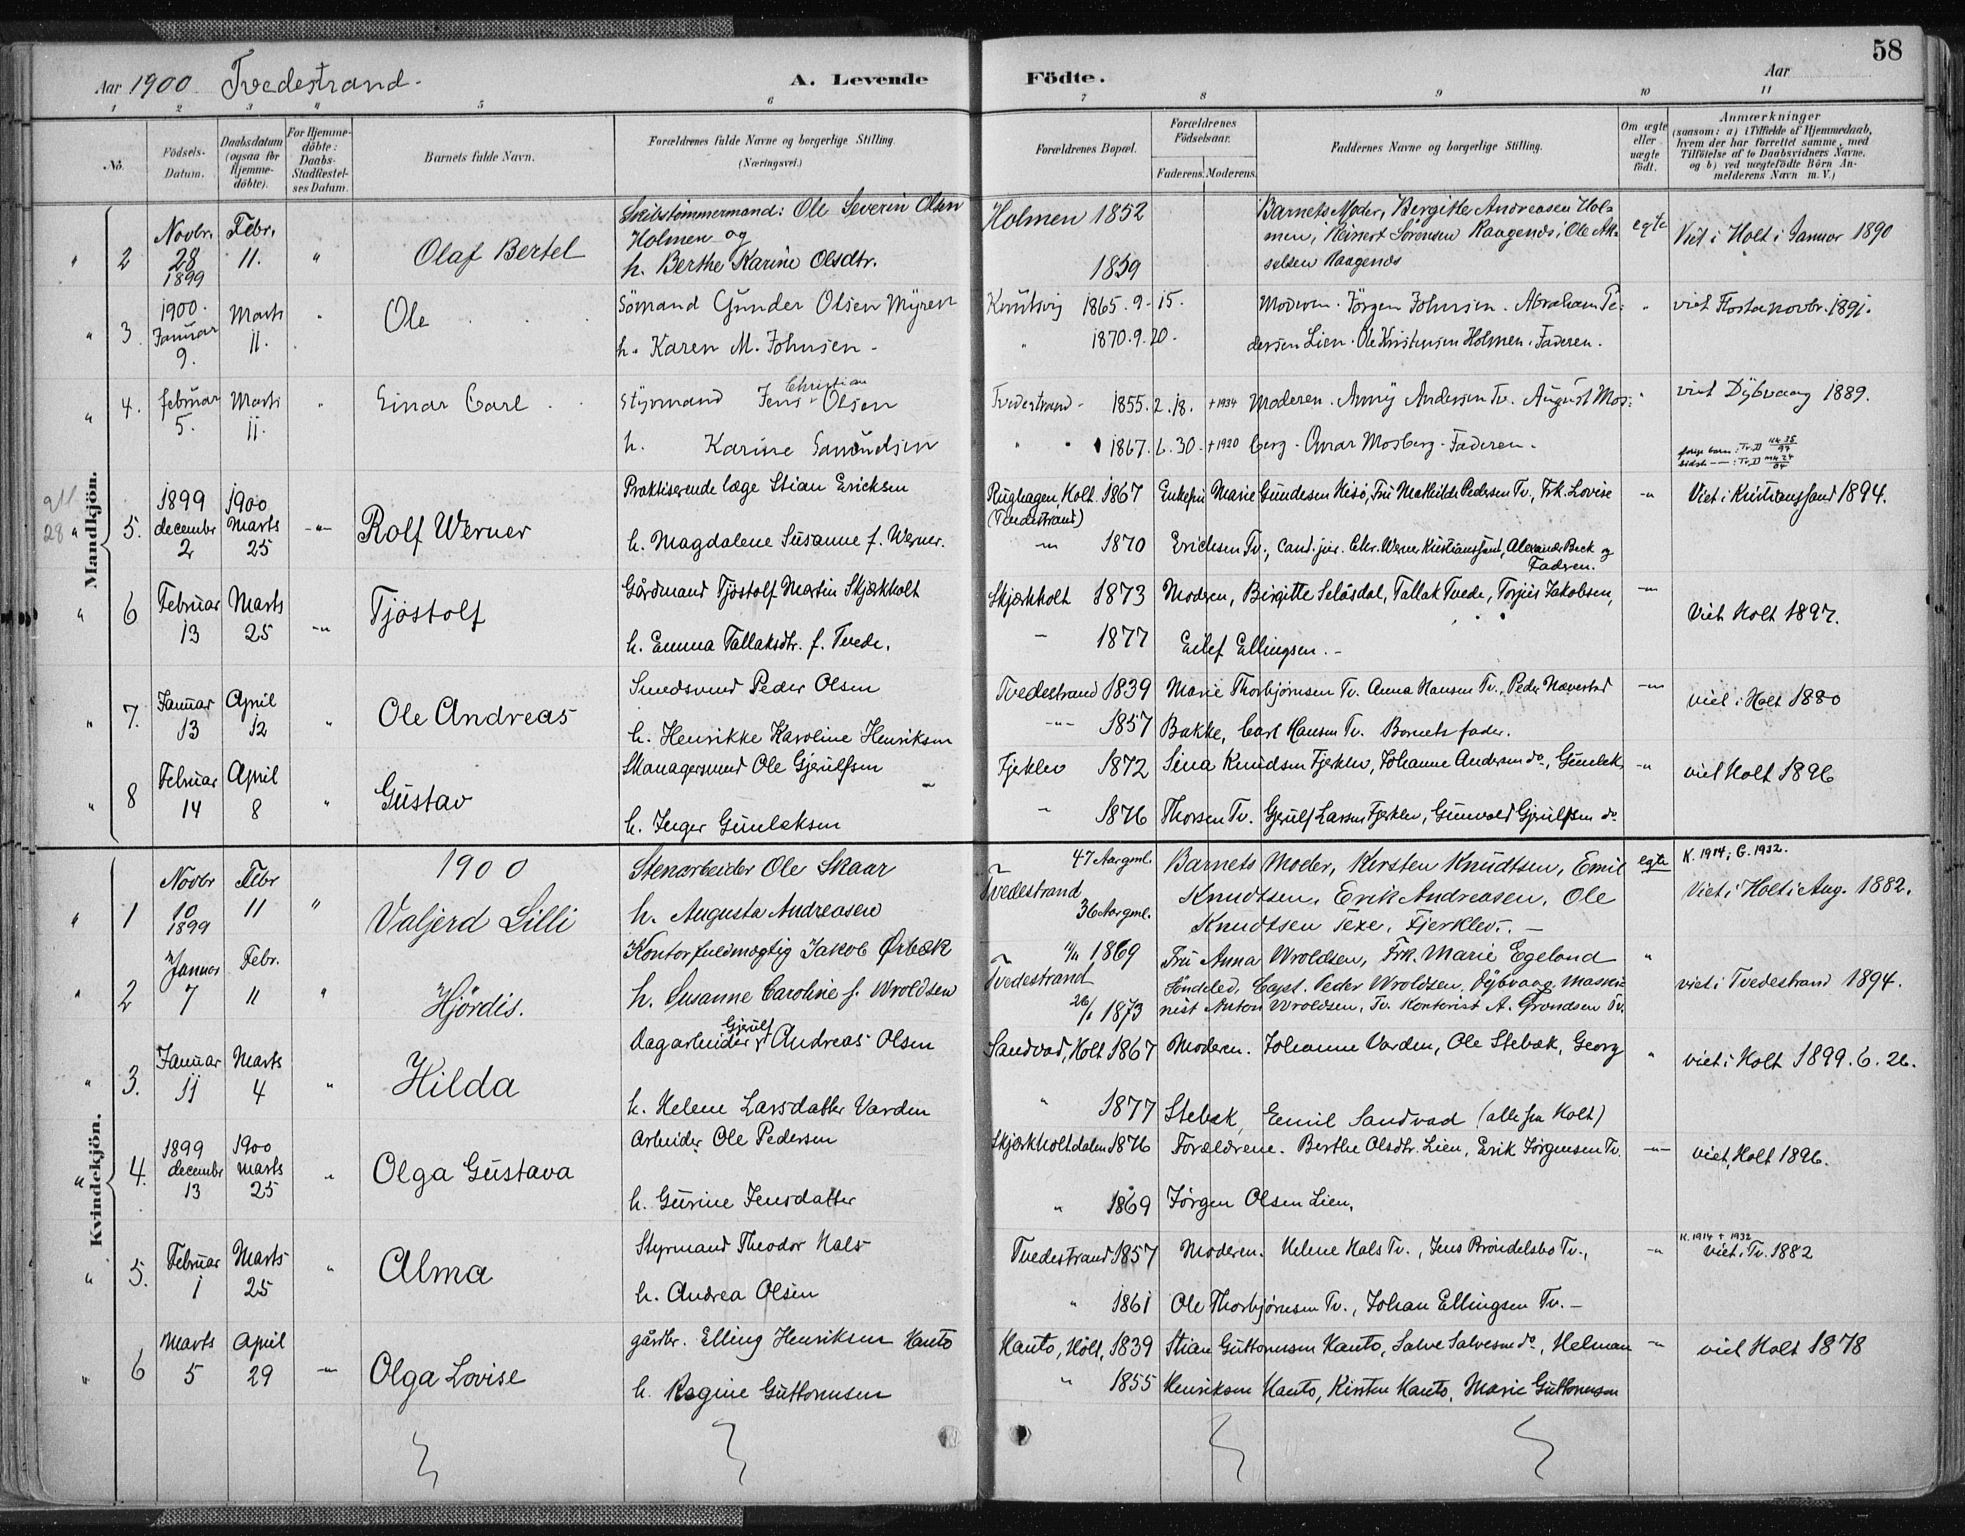 58
Aar 1900 Tvedestrand.
A. Levende Födte.
Aar
1 2 3 4 5 6 7 8 9 10 11
No.
Födsels-
Datum.
Daabsdatum
(ogsaa for
Hjemme-
döbte).
For Hjemme-
döbte:
Daabs-
Stadfestel-
ses Datum.
Barnets fulde Navn.
Forældrenes fulde Navne og borgerlige Stilling.
(Næringsvei.)
Forældrenes Bopæl.
Forældrenes
Födselsaar.
Faderens. Moderens.
Faddernes Navne og borgerlige Stilling.
Om ægte
eller
uægte
födt.
Anmærkninger
(saasom: a) i Tilfælde af Hjemmedaab,
hvem der har forrettet samme, med
Tilföielse af to Daabsvidners Navne,
og b) ved uægtefödte Börn An-
melderens Navn m. V.)
Mandkjön.
2
Novbr.
28
1899
Febr.
11.
"
Olaf Bertel
Skibstömmermand: Ole Severin Olsen
Holmen og
h. Berthe Karine Olsdtr.
Holmen 1852
1859
Barnets Moder, Bergitte Andreasen Hol-
men, Reinert Sörensen Raagenæs, Ole Ak-
selsen Raagenæs
egte
Viet i Holt i Januar 1890
3.
1900.
Januar
9.
Marts
11.
Ole
Sömand Gunder Olsen Myren
h. Karen M. Johnsen -
Knutsvig 1865. 9. 15.
" 1870. 9. 20.
Moderen. Jörgen Johnsen. Abraham Pe-
dersen Lien. Ole Kristensen Holmen. Faderen.
"
viet Flosta novbr. 1891.
4.
februar
5.
Marts
11.
Einar Carl
Christian
Styrmand Jens Olsen
h. Karine Samuelsen
Tvedestrand - 1855. 2. 18. + 1934
" " 1867. 6. 30. + 1920
Moderen. Anny Andersen Tv. August Mos-
berg. Omar Mosberg. Faderen.
"
viet Dybvaag 1889.
21
28
5.
1899
decembr
2
1900
Marts
25
-"-
Rolf Werner
Praktiserende læge Stian Ericksen
h. Magdalene Susanne f. Werner.
Rughagen, Holt. 1867
(Tvedestrand)
-"- 1870
Enkefru Marie Gundesen Hisö, Fru Mathilde Pedersen Tv., Frk. Lovise
Erichsen Tv., Cand. jur. Chr. Werner Kristianssand, Alexander Beck og
Faderen.
-"-
Viet i Kristianssand 1894.
6
Februar
13
Marts
25
-"-
Tjöstolf
Gårdmand Tjöstolf Martin Skjærkholt
h. Emma Tallaksdtr. f. Tvede.
Skjærkholt 1873
- 1877
Moderen, Birgitte Selåsdal, Tallak Tvede, Torjus Jakobsen,
Eilef Ellingsen. -
-"-
Viet Holt 1897.
7.
Januar
13
April
12
"
Ole Andreas
Smedsvend Peder Olsen
h. Henrikke Karoline Henriksen
Tvedestrand 1839
-"- 1857
Marie Thorbjørnsen Tv. Anna Hansen Tv., Peder Nævestad
Bakke, Carl Hansen Tv. Barnets fader.
-"-
viet i Holt 1880
8
Februar
14
April
8
"
Gustav
Skomagersvend Ole Gjerulfsen
h. Inger Gunleksen
Fjerklev 1872
" 1876
Sina Knudsen Fjerklev, Johanne Andersen do, Gunlek
Thorsen Tv. Gjerulf Larsen Fjerklev, Gunvald Gjerulfsen do
-"-
viet Holt 1896
Kvindekjön.
1900
1
Novbr
10
1899
Febr
11
"
Valjerd Lilli
Stenarbeider Ole Skaar
h. Augusta Andreasen
47 Aar gml.
Tvedestrand
36 Aar gml.
Barnets Moder, Kersten Knudtsen, Emil
Knudtsen, Erik Andreasen, Ole
Knudtsen Texe, Fjerklev. -
egte
K. 1914; G. 1932.
Viet i Holt i Aug. 1882.
2
Januar
7
Febr.
11
"
Hjördis.
Kontorfuldmægtig Jakob Ørbæk
h. Susanne Caroline f. Wroldsen
1869
Tvedestrand
26/1 1873
Fru Anna Wroldsen, Frk. Marie Egeland
Söndeled, Capt. Peder Wroldsen, Dybvaag, Maski-
nist Anton Wroldsen, Tv. Kontorist A. Grondsen Tv.
"
viet i Tvedestrand 1894.
3.
Januar
11
Marts
4
"
Hilda
Gjerulf
Dagarbeider Andreas Olsen
h. Helene Larsdatter Varden
Sandvad, Holt 1867
" 1877
Moderen. Johanne Varden, Ole Stebæk, Georg
Stebæk, Emil Sandvad (alle fra Holt)
"
viet i Holt 1899. 6. 26.
4.
1899
decembr
13
1900
marts
25
"
Olga Gustava
Arbeider Ole Pedersen
h. Gurine Jensdatter
Skjærkholtdalen 1876
" 1869
Forældrene. Berthe Olsdtr. Lien, Erik Jörgensen Tv.
Jörgen Olsen Lien,
-"-
viet, Holt 1896.
5.
Februar
1
Marts
25
"
Alma
Styrmand Theodor Hals
h. Andrea Olsen
Tvedestrand 1857
" 1861
Moderen. Helene Hals Tv., Jens Bröndelsbo Tv.,
Ole Thorbjørnsen Tv., Johan Ellingsen Tv. -
-"-
K. 1914 + 1932
Viet i Tv. 1882
6
Marts
5
April
29
-"-
Olga Lovise
gårdbr. Elling Henriksen Hanto
h. Regine Guttormsen
Hanto, Holt, 1839
" 1855
Stian Guttormsen Hanto, Salve Salvesen do, Helman
Henriksen Hanto, Kirsten Hanto, Marie Guttormsen
-"-
viet Holt 1878